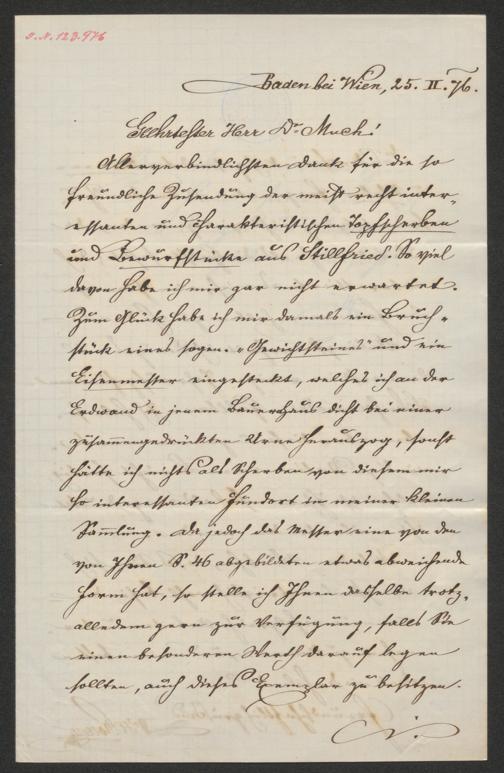 J. N. 123.976
Baden bei Wien, 25. II. 76.
Geehrtester Herr Dr. Much!
Allerverbindlichsten Dank für die so
freundliche Zusendung der meist recht inter-
essanten und charakteristischen Topfscherben
und Bewurfstücke aus Stillfried. So viel
davon habe ich mir gar nicht erwartet.
Zum Glück habe ich mir damals ein Bruch-
stück eines sogen. „Gewichtsteines" und ein
Eisenmesser eingesteckt, welches ich an der
Erdwand in jenem Bauernhaus dicht bei einer
zusammengedrückten Urne herauszog, sonst
hätte ich nichts als Scherben von diesem mir
so interessanten Fundort in meiner kleinen
Sammlung. Da jedoch das Messer eine von den
von Ihnen S. 46 abgebildeten etwas abweichende
Form hat, so stelle ich Ihnen dasselbe trotz-
alledem gern zur Verfügung, falls Sie
einen besonderen Werth darauf legen
sollten, auch dieses Exemplar zu besitzen.